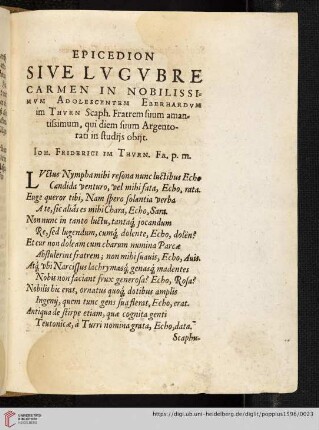 EPICEDION
SIVE LVGVBRE
CARMEN IN NOBILISSI-
MVM ADOLESCENTEM EBERHARDVM
im THVRN Scaph. Fratrem suum aman-
tissimum, qui diem suum Argento-
rati in studijs obijt.
IOH. FRIDERICI IM THVRN. Fa. p. m.
LVctus Nympha mihi resona nunc luctibus Echo
Candida venturo, vel mihi fata, Echo, rata.
Euge queror tibi, Nam spero solantia verba
A te, sic aliàs es mihi chara, Echo, Sara.
Non nunc in tento luctu, tantaq́, jocandum
Re, sed lugendum, cumq́, dolente, Echo, dolen?
Et cur non doleam cum charum numina Parcæ
Abstulerint fratrem; nan mihi suavis, Echo, Avis.
Atq́, vbi Narcissus lachrymasq́, genasq́, madentes
Nobis non faciant frux generosa? Echo, Rosa?
Nobilis hic erat, ornatus quoq́, dotibus amplis
Ingenij, quem tunc gens sua flerat, Echo, erat.
Antiqua de stirpe etiam, quæ cognita genti
Teutonicæ, à Turri nomina grata, Echo, data.
Scaphu-
UNIVERSITÄTS-
BIBLIOTHEK
HEIDELBERG
https://digi.ub.uni-heidelberg.de/diglit/poppius1596/0023